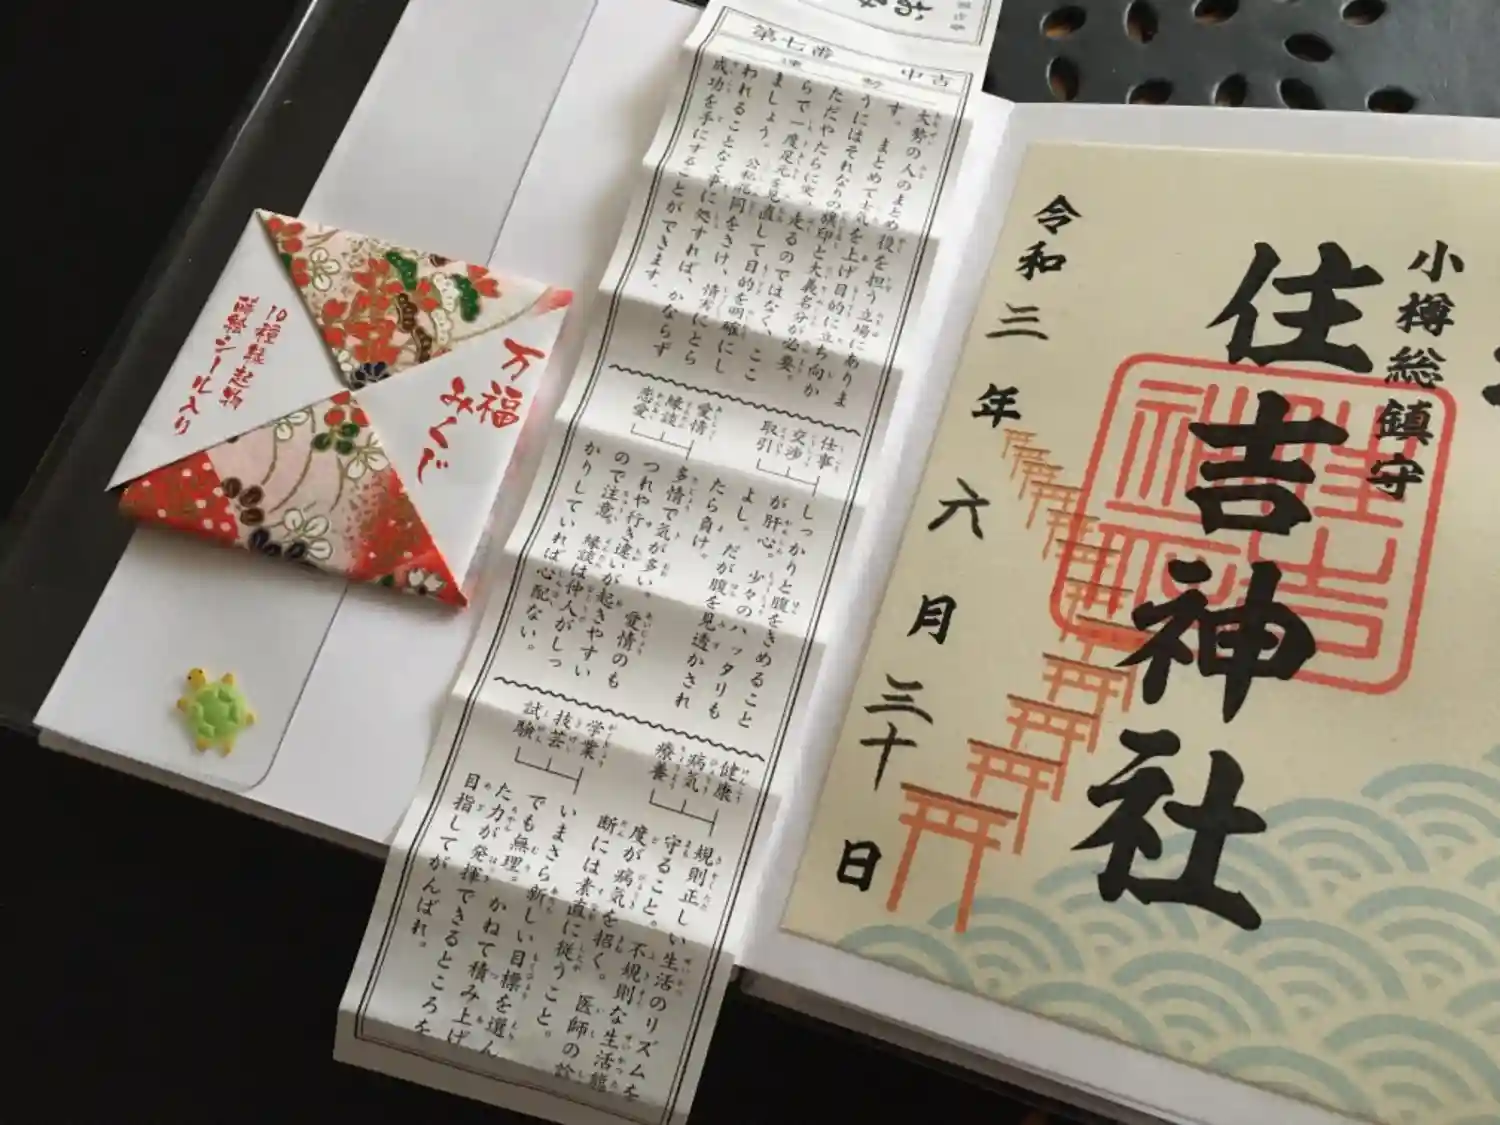 万福
みくじ
10種縁起物
蒔絵シール入り
第七番
中吉
運勢
大勢の人のまとめ役を担う立場にありま
す。まとめて士気を上げ目的に立ち向か
うにはそれなりの旗印と大義名分が必要。
ただやたらに突っ走るのではなく、ここ
らで一度足元を見直して目的を明確にし
ましょう。公私混同をさけ、情実にとら
われることなく事に処すれば、かならず
成功を手にすることができます。
仕事
交渉
取引
しっかりと腹をきめること
が肝心。少々のハッタリも
よし。だが腹を見透かされ
たら負け。
愛情
縁談
恋愛
多情で気が多い。愛情のも
つれや行き違いが起きやすい
ので注意。縁談は仲人がしっ
かりしていれば心配ない。
健康
病気
療養
規則正しい生活のリズムを
守ること。不規則な生活態
度が病気を招く。医師の診
断には素直に従うこと。
学業
技芸
試験
いまさら新しい目標を選ん
でも無理。かねて積み上げ
た力が発揮できるところを
目指してがんばれ。
小樽総鎮守
住吉神社
令和三年六月三十日